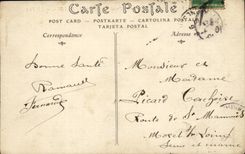 Carte Postale
POST CARD — POSTKARTE — CARTOLINA POSTALE
TARJETA POSTAL
Correspondance
Bonne Santé
Monsieur et
Madame
Picard
Route de St Mammès
Moret s/ Loing
Seine et Marne